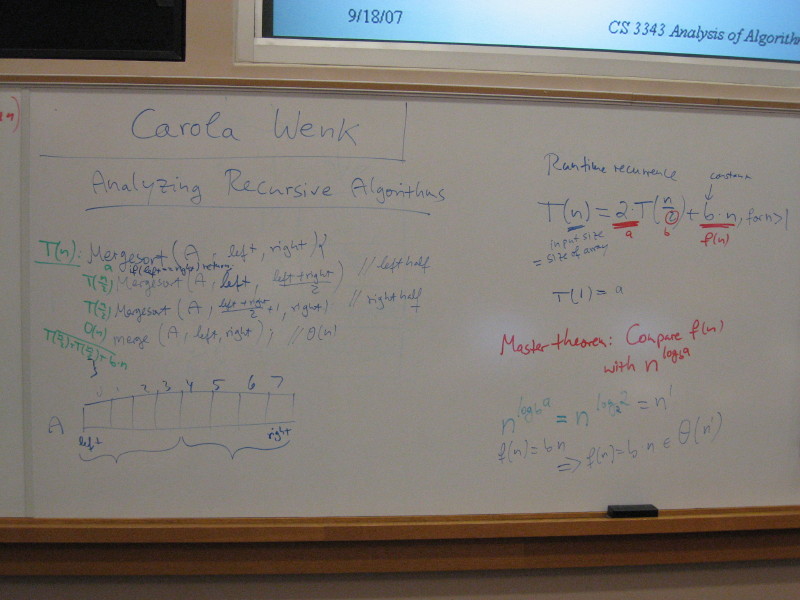 9/18/07
CS 3343 Analysis of Algorith
Carola Wenk
Analyzing Recursive Algorithms
T(n): Mergesort (A, left, right) {
a if (left==right) return;
T(n/2) Mergesort (A, left, left+right/2) // left half
T(n/2) Mergesort (A, left+right/2 +1, right) // right half
O(n) merge (A, left, right); // Θ(n)
T(n/2)+T(n/2)+b·n
}
2 3 4 5 6 7
A
left right
Runtime recurrence
constant
T(n) = 2·T(n/2) + b·n, for n>1
a b f(n)
input size
= size of array
T(1) = a
Master theorem: Compare f(n)
with n^log_b a
n^log_b a = n^log_2 2 = n^1
f(n) = b n
=> f(n) = b n ∈ Θ(n^1)